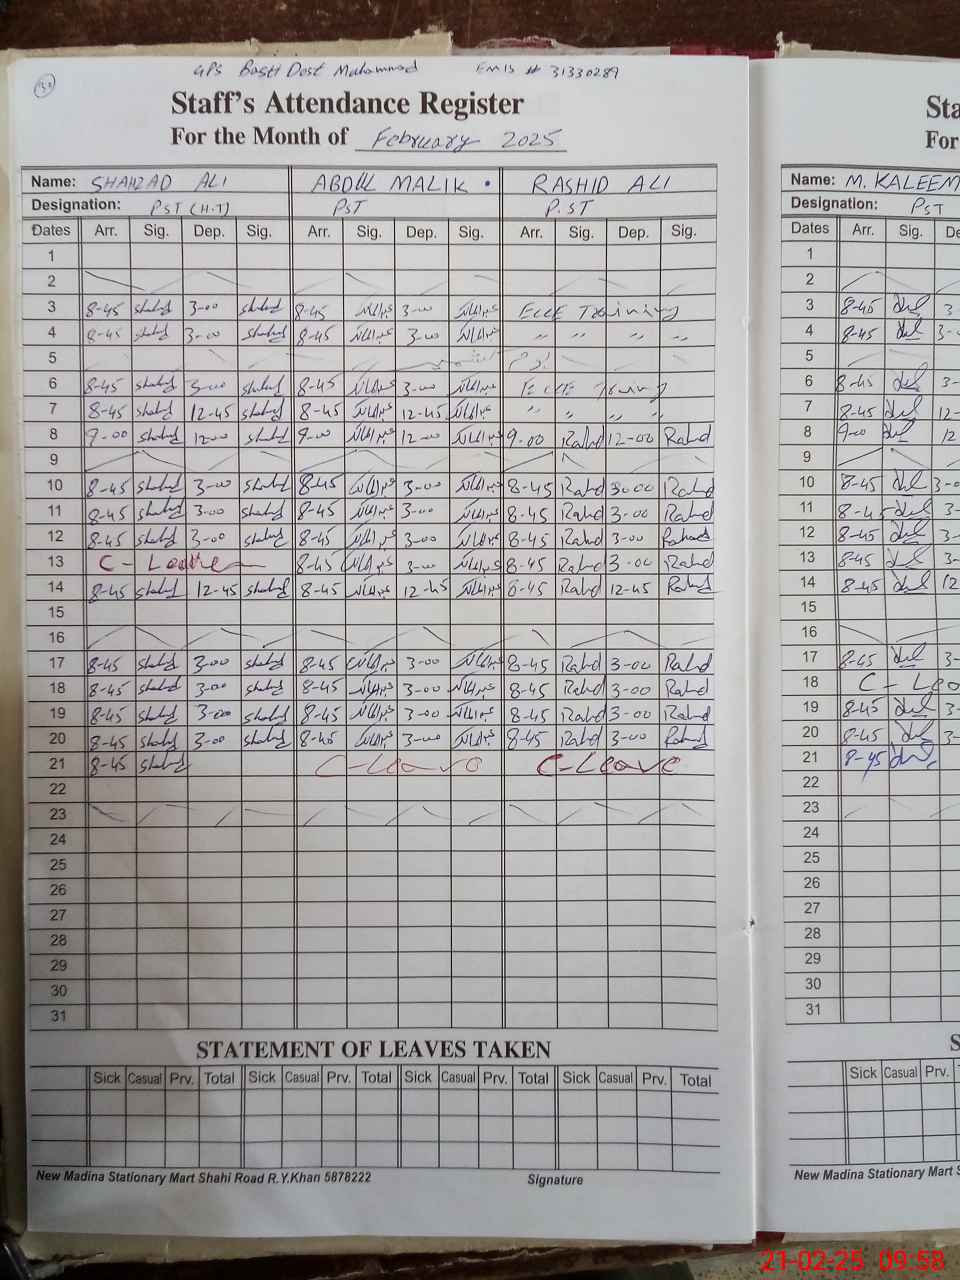 39
GPS Basti Dost Muhammad EMIS # 31330289
Staff's Attendance Register
For the Month of February 2025
Name: SHAHZAD ALI ABDUL MALIK . RASHID ALI
Designation: PST (H.T) PST P.ST
Dates Arr. Sig. Dep. Sig. Arr. Sig. Dep. Sig. Arr. Sig. Dep. Sig.
1
2
3 8-45 Shahzad 3-00 Shahzad 8-45 عبدالمالک 3-00 عبدالمالک ECCE Training
4 8-45 Shahzad 3-00 Shahzad 8-45 عبدالمالک 3-00 عبدالمالک " " " "
5 یوم
6 8-45 Shahzad 3-00 Shahzad 8-45 عبدالمالک 3-00 عبدالمالک ECCE Training
7 8-45 Shahzad 12-45 Shahzad 8-45 عبدالمالک 12-45 عبدالمالک " " " "
8 9-00 Shahzad 12-00 Shahzad 9-00 عبدالمالک 12-00 عبدالمالک 9-00 Rashd 12-00 Rashd
9
10 8-45 Shahzad 3-00 Shahzad 8-45 عبدالمالک 3-00 عبدالمالک 8-45 Rashd 3-00 Rashd
11 8-45 Shahzad 3-00 Shahzad 8-45 عبدالمالک 3-00 عبدالمالک 8-45 Rashd 3-00 Rashd
12 8-45 Shahzad 3-00 Shahzad 8-45 عبدالمالک 3-00 عبدالمالک 8-45 Rashd 3-00 Rashd
13 C - Leave 8-45 عبدالمالک 3-00 عبدالمالک 8-45 Rashd 3-00 Rashd
14 8-45 Shahzad 12-45 Shahzad 8-45 عبدالمالک 12-45 عبدالمالک 8-45 Rashd 12-45 Rashd
15
16
17 8-45 Shahzad 3-00 Shahzad 8-45 عبدالمالک 3-00 عبدالمالک 8-45 Rashd 3-00 Rashd
18 8-45 Shahzad 3-00 Shahzad 8-45 عبدالمالک 3-00 عبدالمالک 8-45 Rashd 3-00 Rashd
19 8-45 Shahzad 3-00 Shahzad 8-45 عبدالمالک 3-00 عبدالمالک 8-45 Rashd 3-00 Rashd
20 8-45 Shahzad 3-00 Shahzad 8-45 عبدالمالک 3-00 عبدالمالک 8-45 Rashd 3-00 Rashd
21 8-45 Shahzad C-Leave C-Leave
22
23
24
25
26
27
28
29
30
31
STATEMENT OF LEAVES TAKEN
Sick Casual Prv. Total Sick Casual Prv. Total Sick Casual Prv. Total Sick Casual Prv. Total
New Madina Stationary Mart Shahi Road R.Y.Khan 5878222 Signature
Sta
For
Name: M. KALEEM
Designation: PST
Dates Arr. Sig. De
1
2
3 8-45 3-
4 8-45 3-
5
6 8-45 3-
7 8-45 12-
8 9-00 12
9
10 8-45 3-0
11 8-45 3-
12 8-45 3-
13 8-45 3-
14 8-45 12
15
16
17 8-45 3-
18 C - Lea
19 8-45 3-
20 8-45 3-
21 8-45
22
23
24
25
26
27
28
29
30
31
S
Sick Casual Prv.
New Madina Stationary Mart S
21-02-25 09:58